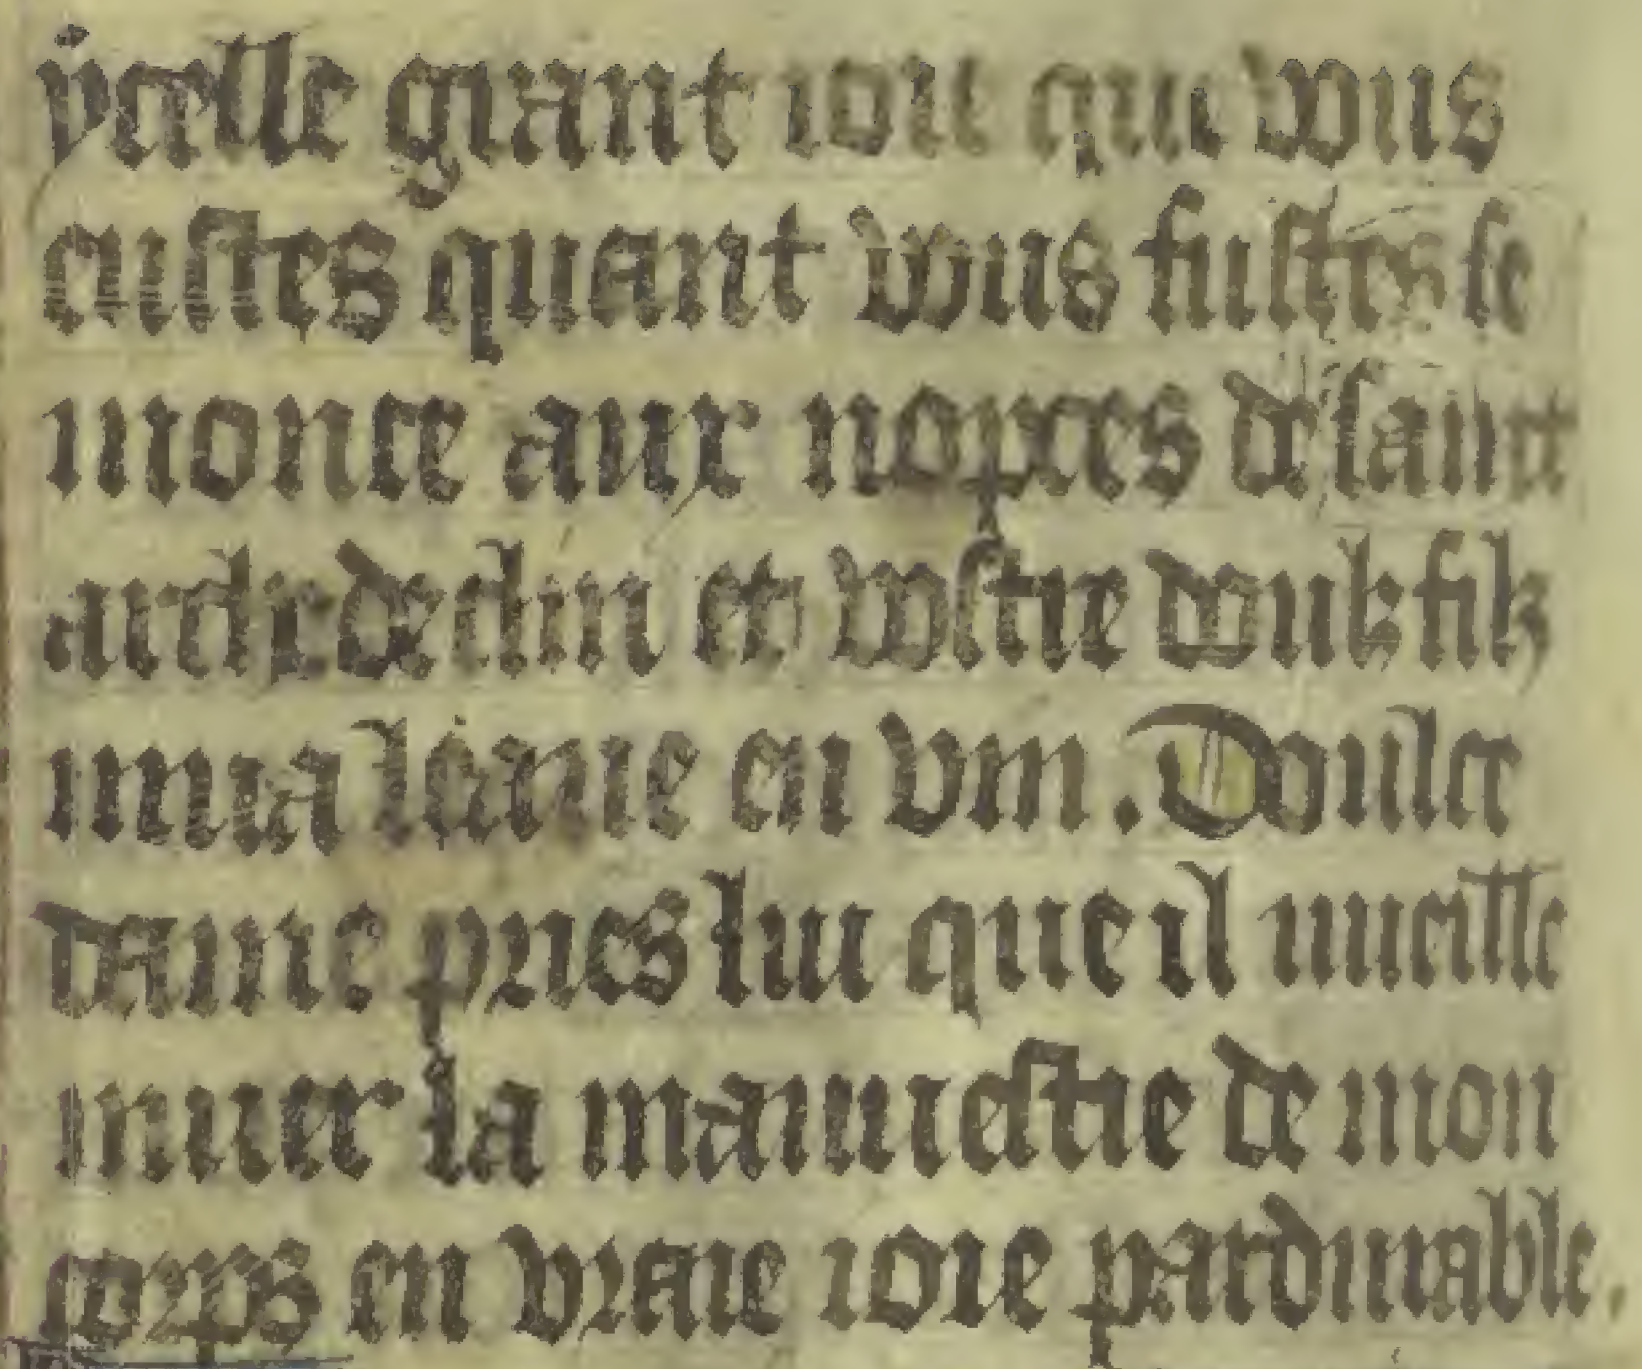 ycelle grant ioie que vous
eustes quant vous fustes se
monce aux nopces de saint
archedeclin et vostre doulz filz
mua leaue en vin. Doulce
dame pries lui que il vueille
muer la mauuestie de mon
corps en vraie ioie pardurable.